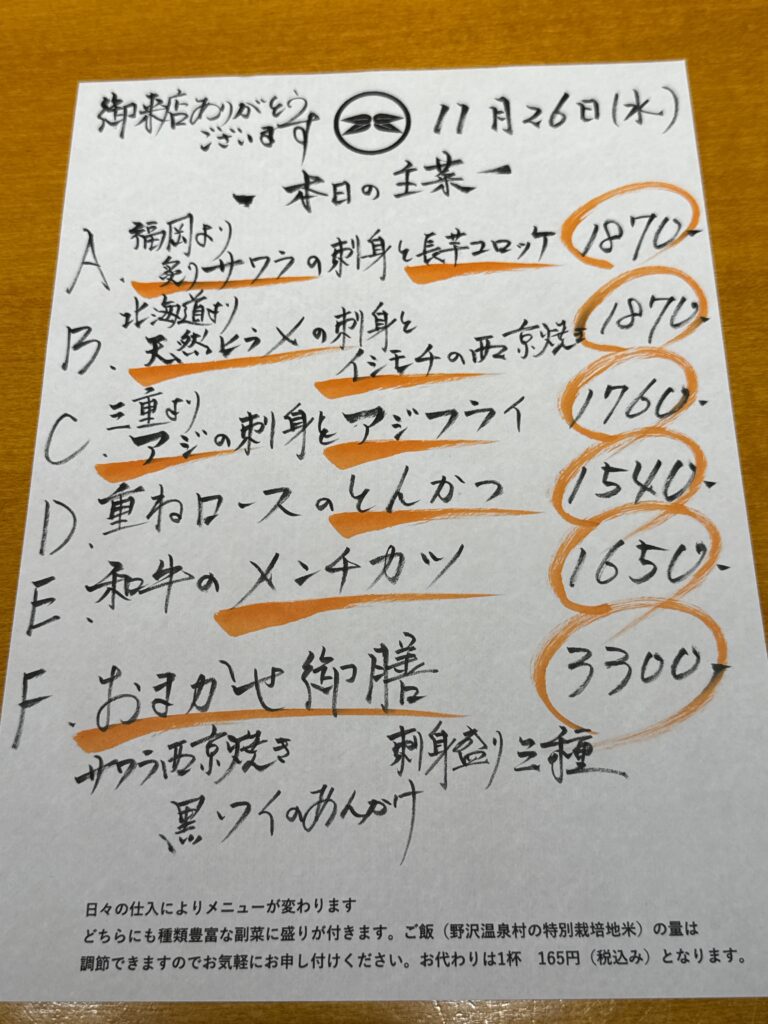 御来店ありがとう
ございます
11月26日(水)
- 本日の主菜 -
A. 福岡より
炙りサワラの刺身と長芋コロッケ 1870-
B. 北海道より
天然ヒラメの刺身と
イシモチの西京焼き 1870-
C. 三重より
アジの刺身とアジフライ 1760-
D. 重ねロースのとんかつ 1540-
E. 和牛のメンチカツ 1650-
F. おまかせ御膳 3300-
サワラ西京焼き 刺身盛り三種
黒ソイのあんかけ
日々の仕入によりメニューが変わります
どちらにも種類豊富な副菜に盛りが付きます。ご飯（野沢温泉村の特別栽培地米）の量は
調節できますのでお気軽にお申し付けください。お代わりは1杯 165円（税込み）となります。